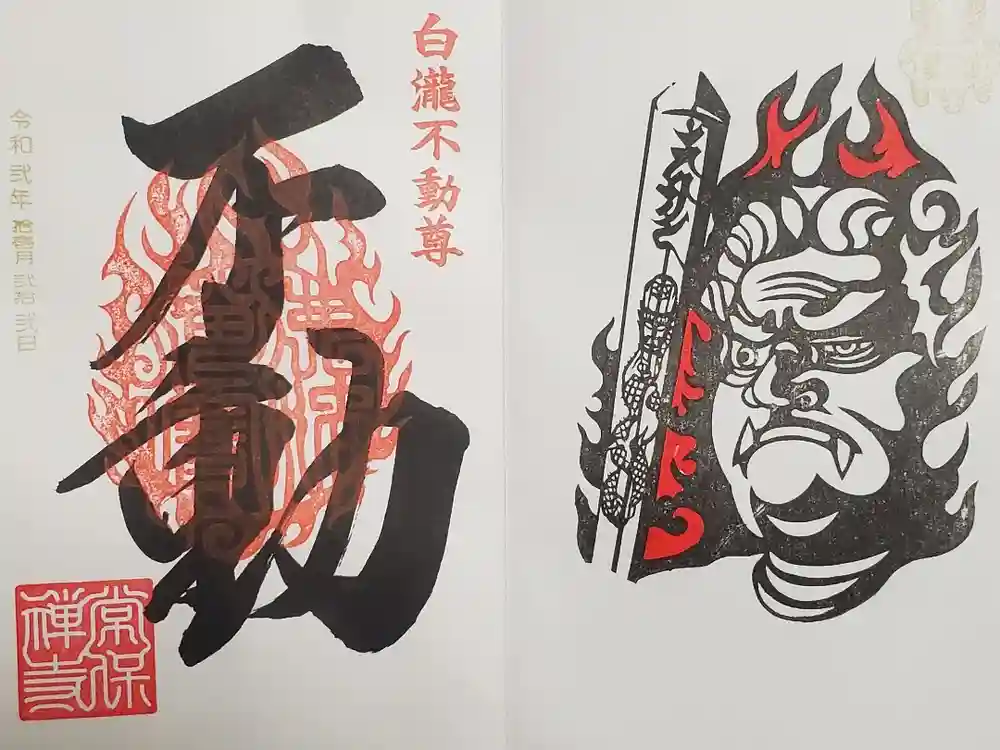 白瀧不動尊
不動
令和 弐年 拾壱月 弐拾 弐日
常保
禅寺